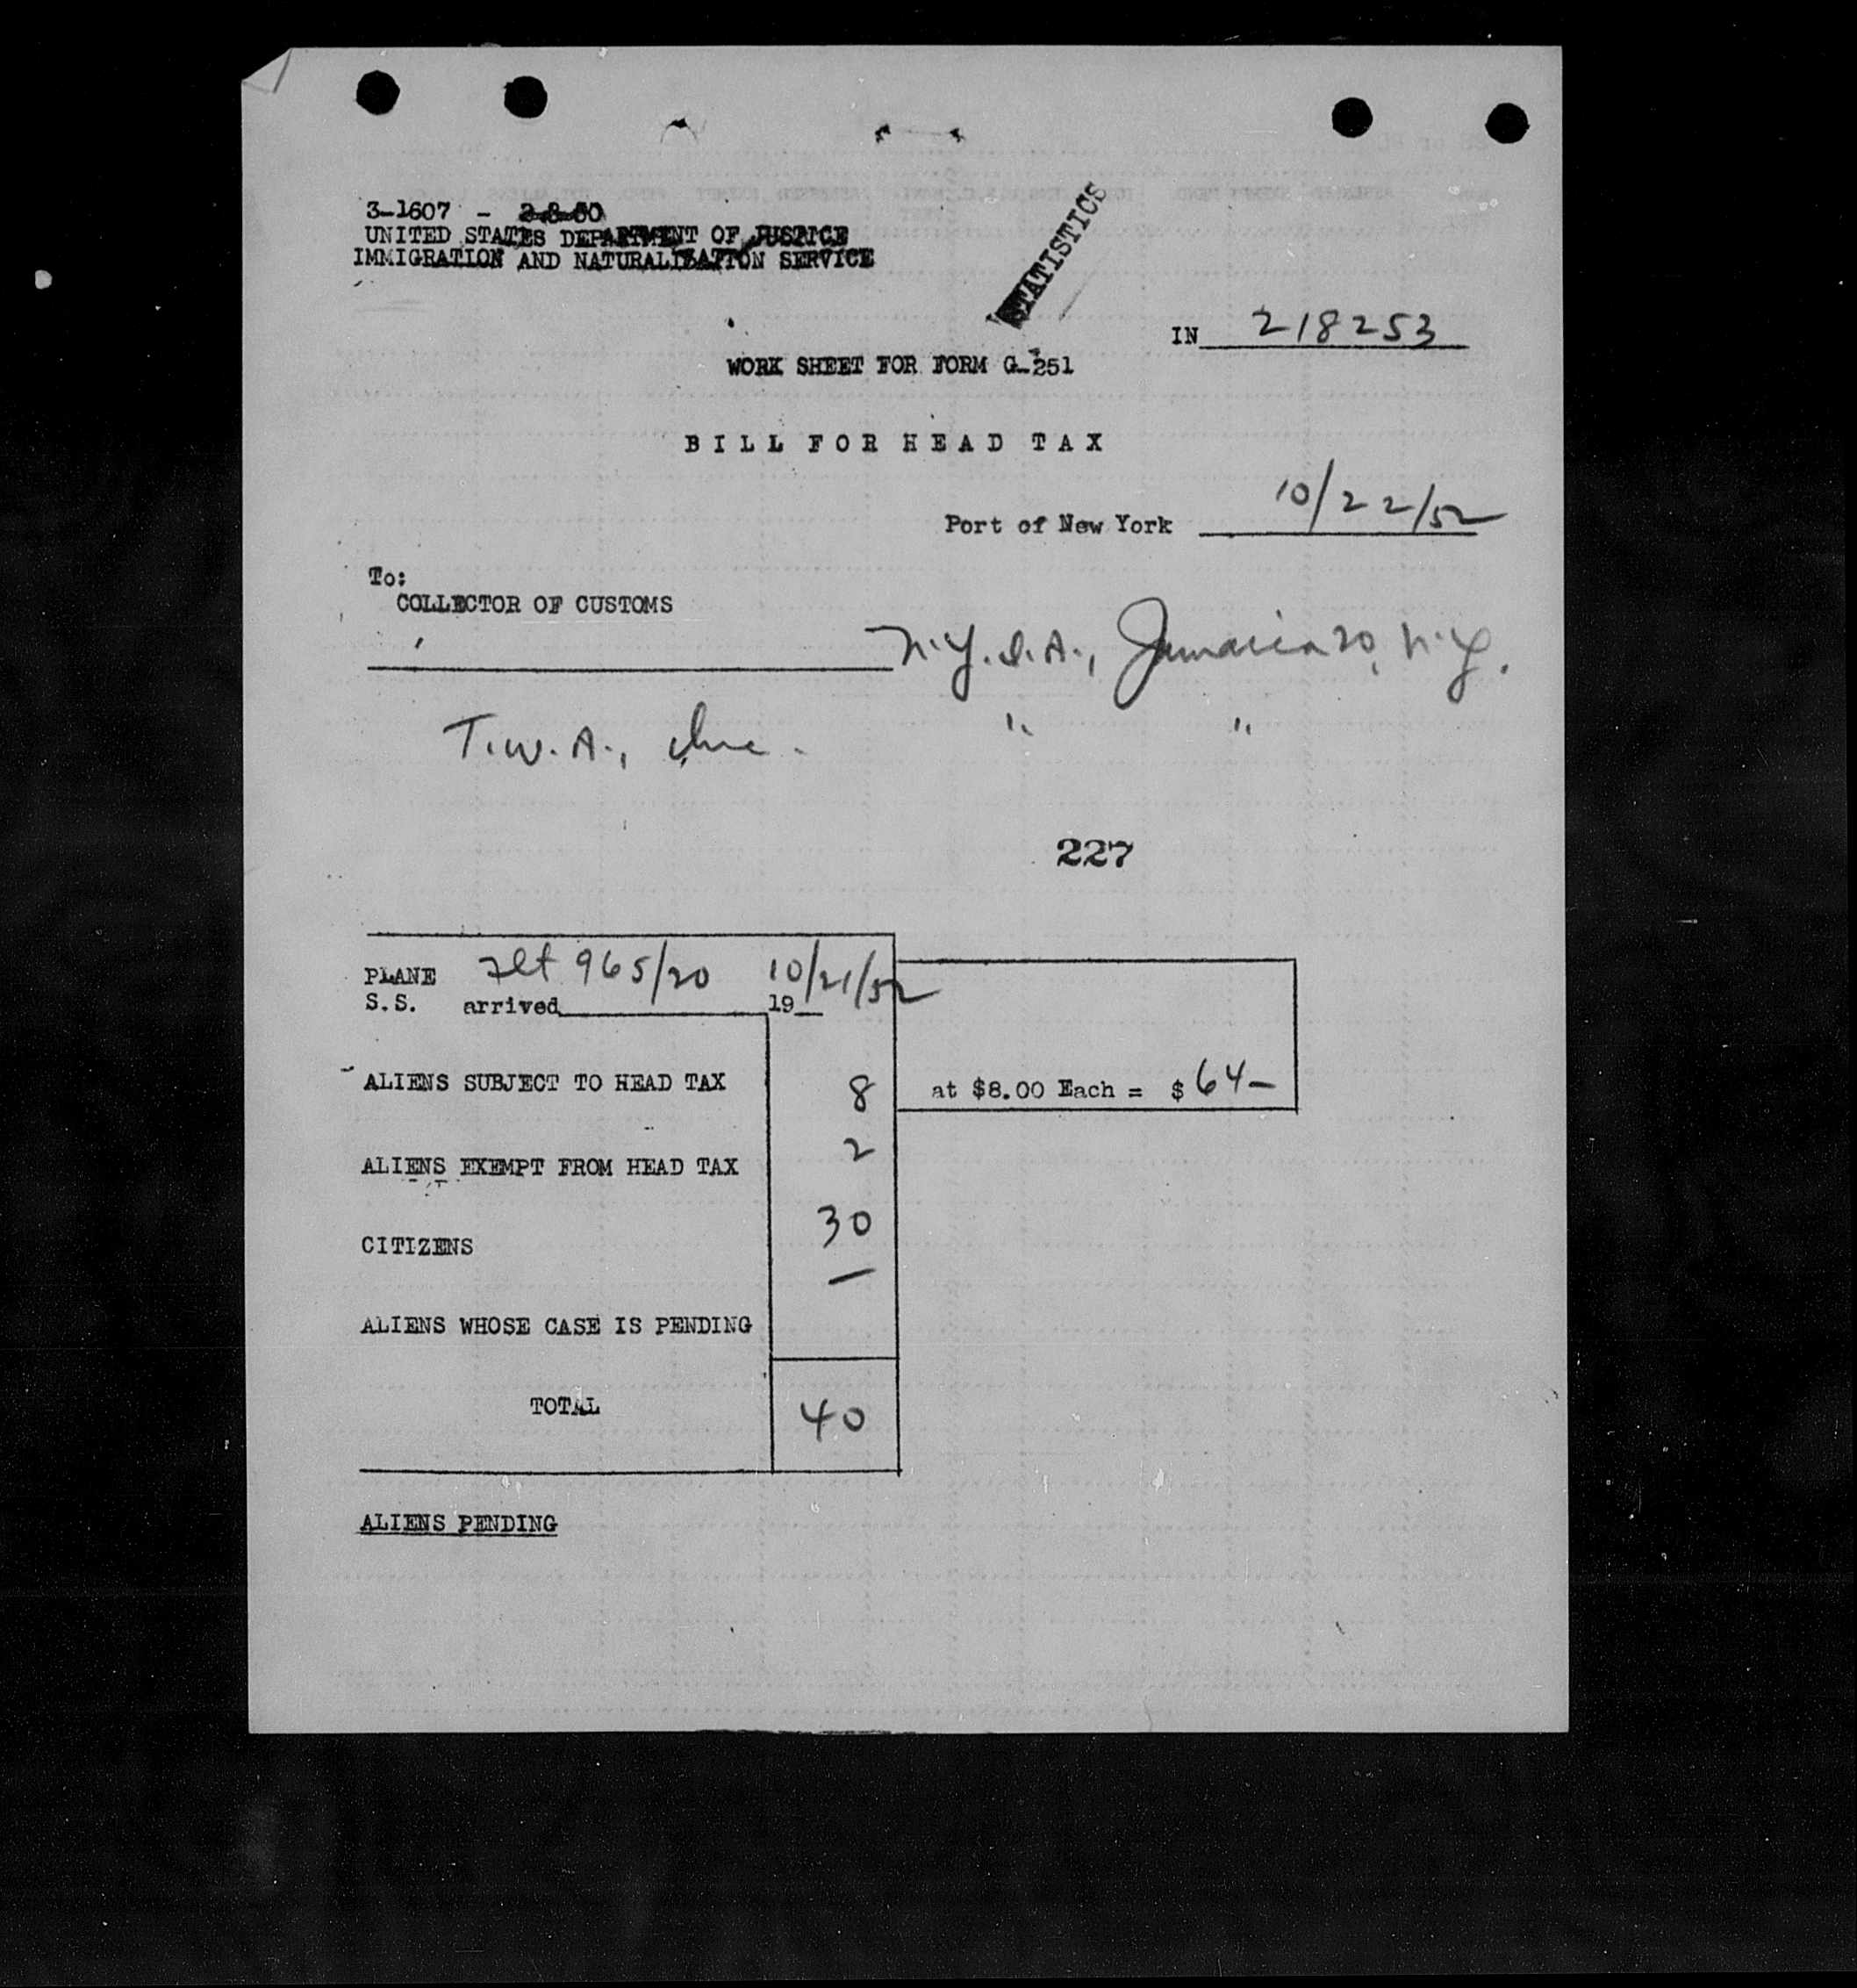 3-1607 - 2-8-50
UNITED STATES DEPARTMENT OF JUSTICE
IMMIGRATION AND NATURALIZATION SERVICE
STATISTICS
IN 218253
WORK SHEET FOR FORM G-251
BILL FOR HEAD TAX
Port of New York 10/22/52
To:
COLLECTOR OF CUSTOMS
N.Y.I.A., Jamaica 30, N.Y.
T.W.A., Inc. " "
227
PLANE Flt 965/20 10/21/52
S.S. arrived 19
ALIENS SUBJECT TO HEAD TAX 8 at $8.00 Each = $ 64-
ALIENS EXEMPT FROM HEAD TAX 2
CITIZENS 30
ALIENS WHOSE CASE IS PENDING —
TOTAL 40
ALIENS PENDING